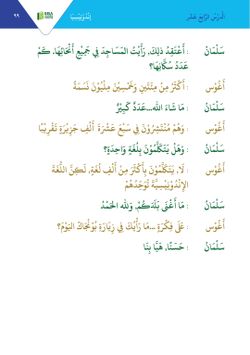 الدَّرْسُ الرَّابِعَ عَشَرَ
إِنْدُونِيسِيَا
٩٩
سَلْمَانُ : أَعْتَقِدُ ذلِكَ، رَأَيْتُ المَسَاجِدَ فِي جَمِيْعِ أَنْحَائِهَا، كَمْ
عَدَدُ سُكَّانِهَا؟
أَغُوْس : أَكْثَرُ مِنْ مِئَتَيْنِ وَخَمْسِيْنَ مِلْيُوْنَ نَسَمَةً
سَلْمَانُ : مَا شَاءَ اللّٰه...عَدَدٌ كَبِيْرٌ
أَغُوْس : وَهُمْ مُنْتَشِرُوْنَ فِي سَبْعَ عَشَرَةَ أَلْفِ جَزِيْرَةٍ تَقْرِيْبًا
سَلْمَانُ : وَهَلْ يَتَكَلَّمُوْنَ بِلُغَةٍ وَاحِدَةٍ؟
أَغُوْس : لَا، يَتَكَلَّمُوْنَ بِأَكْثَرَ مِنْ أَلْفِ لُغَةٍ، لَكِنَّ اللُّغَةَ
الإِنْدُوْنِيْسِيَّةَ تُوَحِّدُهُمْ
سَلْمَانُ : مَا أَغْنَى بَلَدَكُمْ، وَلِلّٰهِ الحَمْدُ
أَغُوْس : عَلَى فِكْرَةٍ ...مَا رَأْيُكَ فِي زِيَارَةِ بُوْنْجَاكْ اليَوْمَ؟
سَلْمَانُ : حَسَنًا، هَيَّا بِنَا